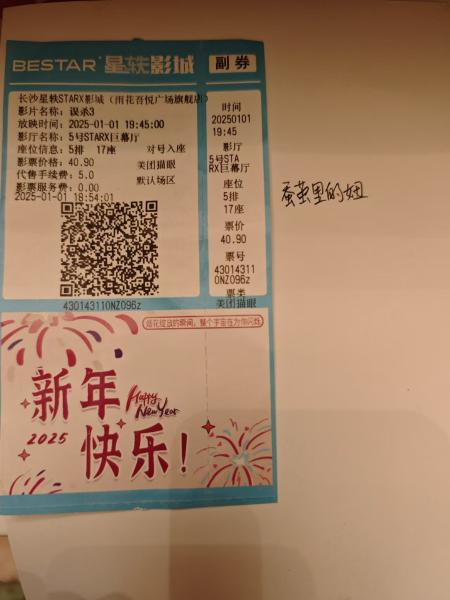 BESTAR 星轶影城
长沙星轶STARX影城（雨花吾悦广场旗舰店）
影片名称：误杀3
放映时间：2025-01-01 19:45:00
影厅名称：5号STARX巨幕厅
座位信息：5排 17座 对号入座
影票价格：40.90 美团猫眼
代售手续费：5.0
默认场区
影票服务费：0.00
2025-01-01 18:54:01
430143110NZ096z
副券
时间
20250101
19:45
影厅
5号STA
RX巨幕厅
座位
5排
17座
票价
40.90
票号
43014311
0NZ096z
票类
美团猫眼
蚕茧里的妞
烟花绽放的瞬间，整个宇宙在为你闪烁
新年
Happy
New Year
2025
快乐！